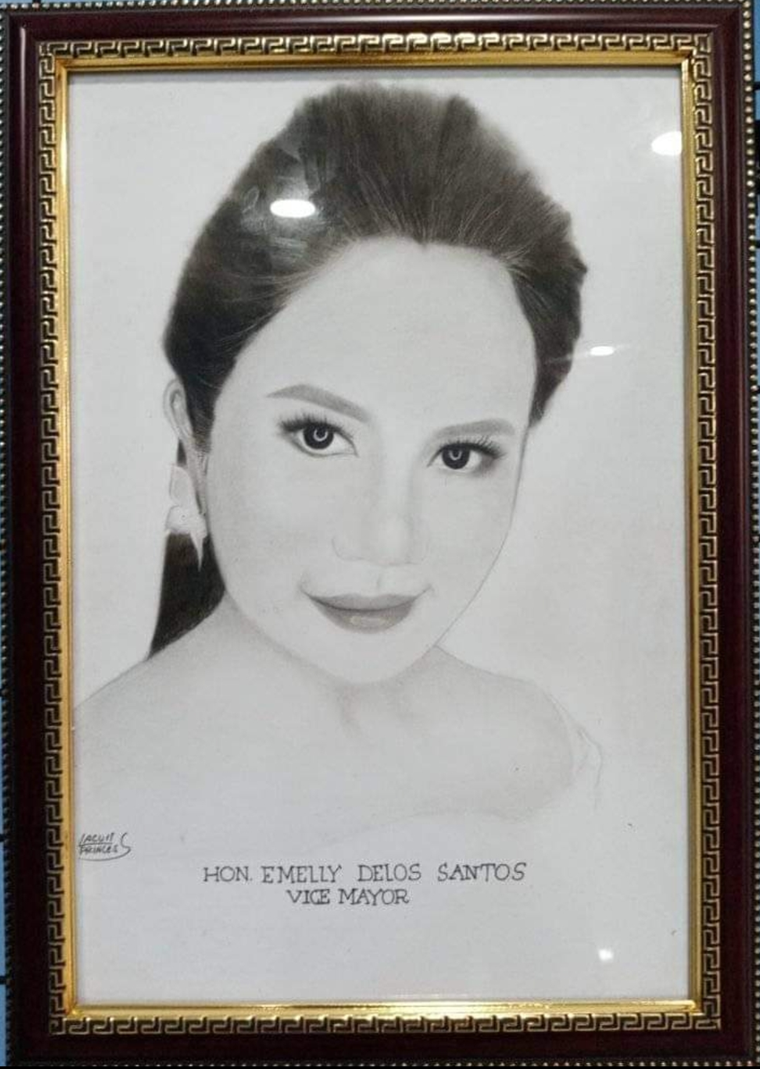 PRINCES
HON. EMELLY DELOS SANTOS
VICE MAYOR